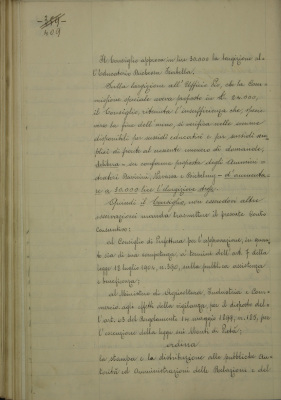 409
Il Consiglio approva in lire 20.000 la elargizione al-
l'educatorio
Sulla elargizione all'Ufficio Pio, che la Com-
missione speciale aveva proposto in L. 24.000,
il Consiglio, ritenuta l'insufficienza che, spesi-
verso la fine dell'anno, si verifica nelle somme
disponibili per sussidi educativi e per sussidi sem-
plici di fronte al numero di domande,
delibera - in conforme proposta degli Ammini-
stratori e - d'aumenta-
re a 30.000 lire l'elargizione stessa.
Quindi il Consiglio, non essendovi altre
osservazioni manda trasmettere il presente Conto
Consuntivo:
al Consiglio di Prefettura per l'approvazione, in quan-
to sia di sua competenza, ai termini dell'art. 7 della
legge 18 luglio 1904, n. 390, sulla pubblica assistenza
e beneficenza;
al Ministero di Agricoltura, Industria e Com-
mercio agli effetti della vigilanza, per il disposto del-
l'art. 23 del Regolamento 14 maggio 1899, n. 185, per
l'esecuzione della legge sui Monti di Pietà;
ordina
la stampa e la distribuzione alle pubbliche Au-
torità ed Amministrazioni della Relazione e del